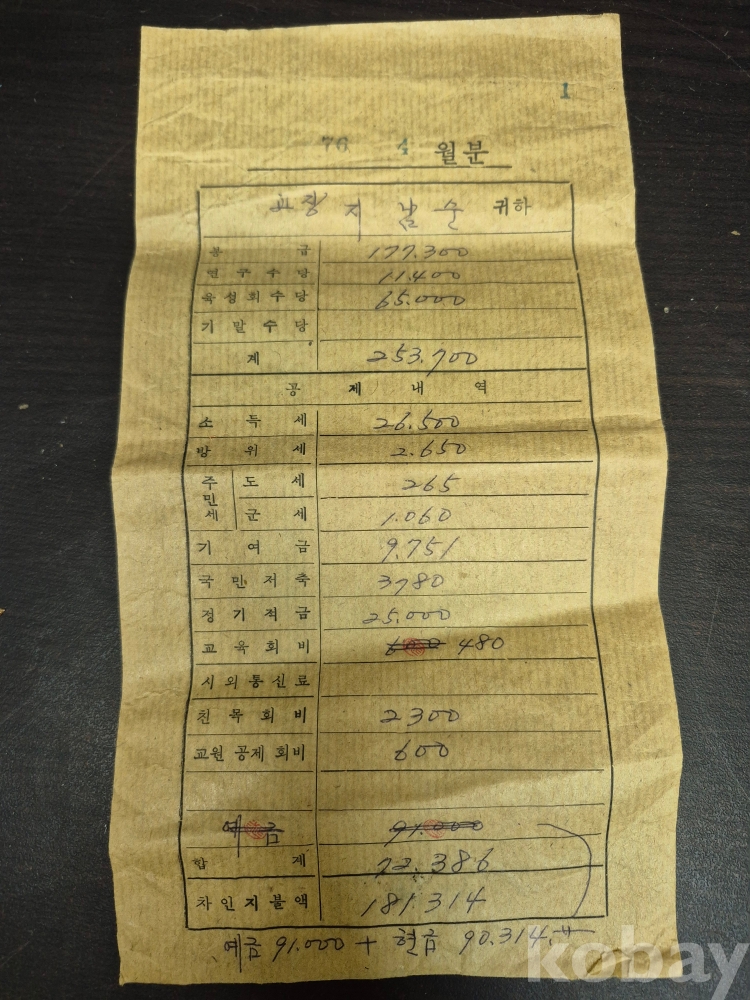 1
76 4 월분
교장 지남순 귀하
봉급 177.300
연구수당 11.400
육성회수당 65.000
기말수당
계 253.700
공제내역
소득세 26.500
방위세 2.650
주민세 도세 265
군세 1.060
기여금 9.751
국민저축 3780
정기적금 25.000
교육회비 600 480
시외통신료
친목회비 2300
교원공제회비 600
예금 91.000
합계 72.386
차인지불액 181.314
예금 91.000 + 현금 90.314
kobay